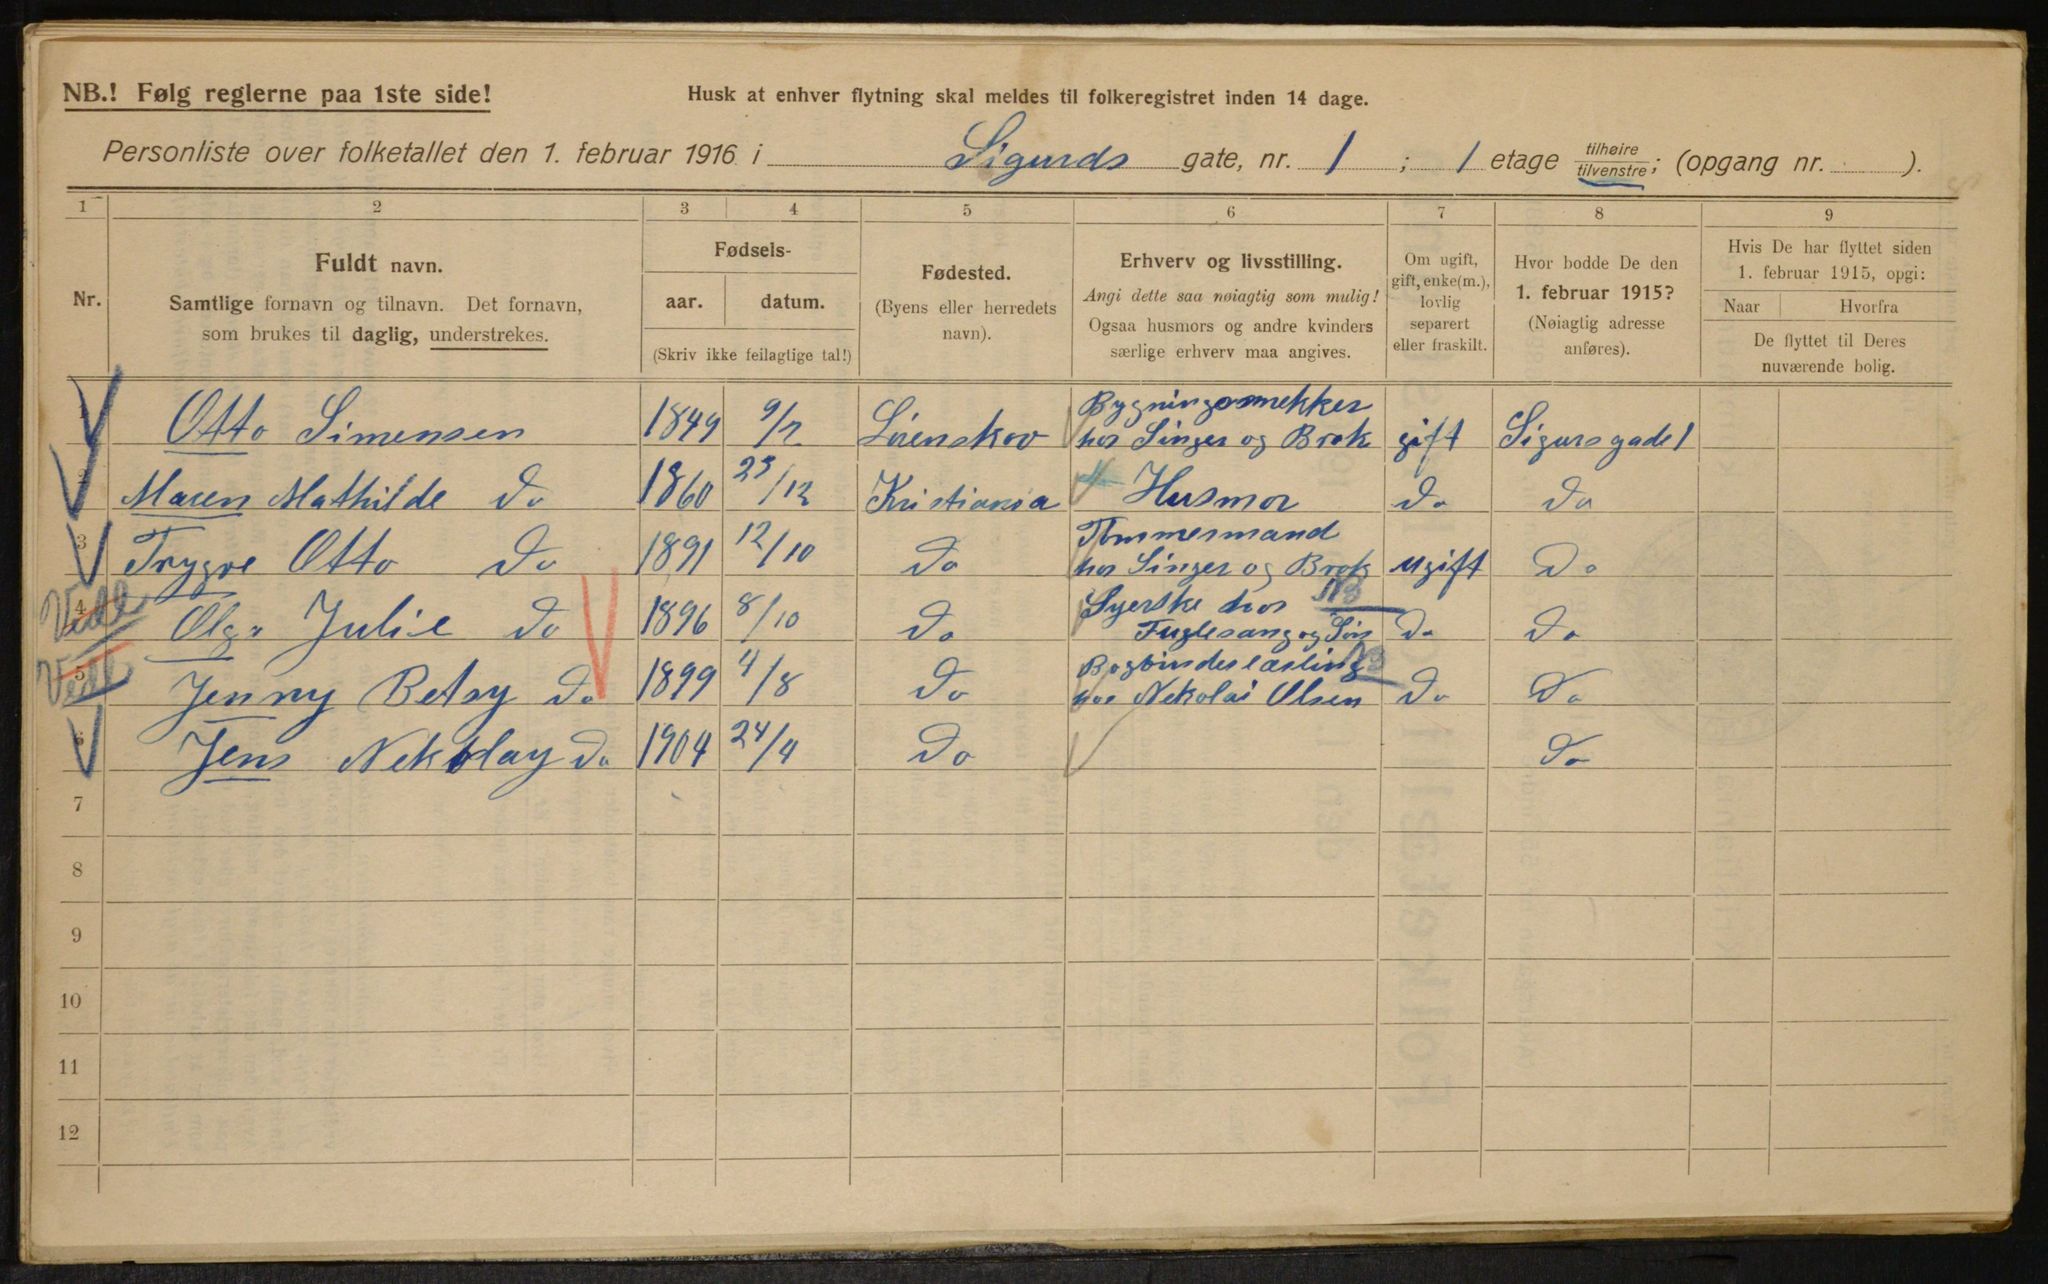 NB.! Følg reglerne paa 1ste side!
Husk at enhver flytning skal meldes til folkeregistret inden 14 dage.
Personliste over folketallet den 1. februar 1916 i Sigurds gate, nr. 1 ; 1 etage tilhøire tilvenstre ; (opgang nr. ).
1 2 3 4 5 6 7 8 9
Nr.
Fuldt navn.
Samtlige fornavn og tilnavn. Det fornavn,
som brukes til daglig, understrekes.
Fødsels-
aar. datum.
(Skriv ikke feilagtige tal!)
Fødested.
(Byens eller herredets
navn).
Erhverv og livsstilling.
Angi dette saa nøiagtig som mulig!
Ogsaa husmors og andre kvinders
særlige erhverv maa angives.
Om ugift,
gift, enke(m.),
lovlig
separert
eller fraskilt.
Hvor bodde De den
1. februar 1915?
(Nøiagtig adresse
anføres).
Hvis De har flyttet siden
1. februar 1915, opgi:
Naar Hvorfra
De flyttet til Deres
nuværende bolig.
Bygningssnekker
1 Otto Simensen 1849 9/7 Lørenskov hos Singer og Brok gift Sigursgade 1
2 Maren Mathilde Do 1860 23/12 Kristiania Husmor Do Do
Tømmermand
3 Trygve Otto Do 1891 12/10 Do hos Singer og Brok ugift Do
Syerske hos NB
4 Olga Julie Do 1896 8/10 Do Fuglesang og Søn Do Do
Bogbinderlærling NB
5 Jenny Betsy Do 1899 4/8 Do hos Nekolai Olsen Do Do
6 Jens Nekolay Do 1904 24/4 Do Do
7
8
9
10
11
12